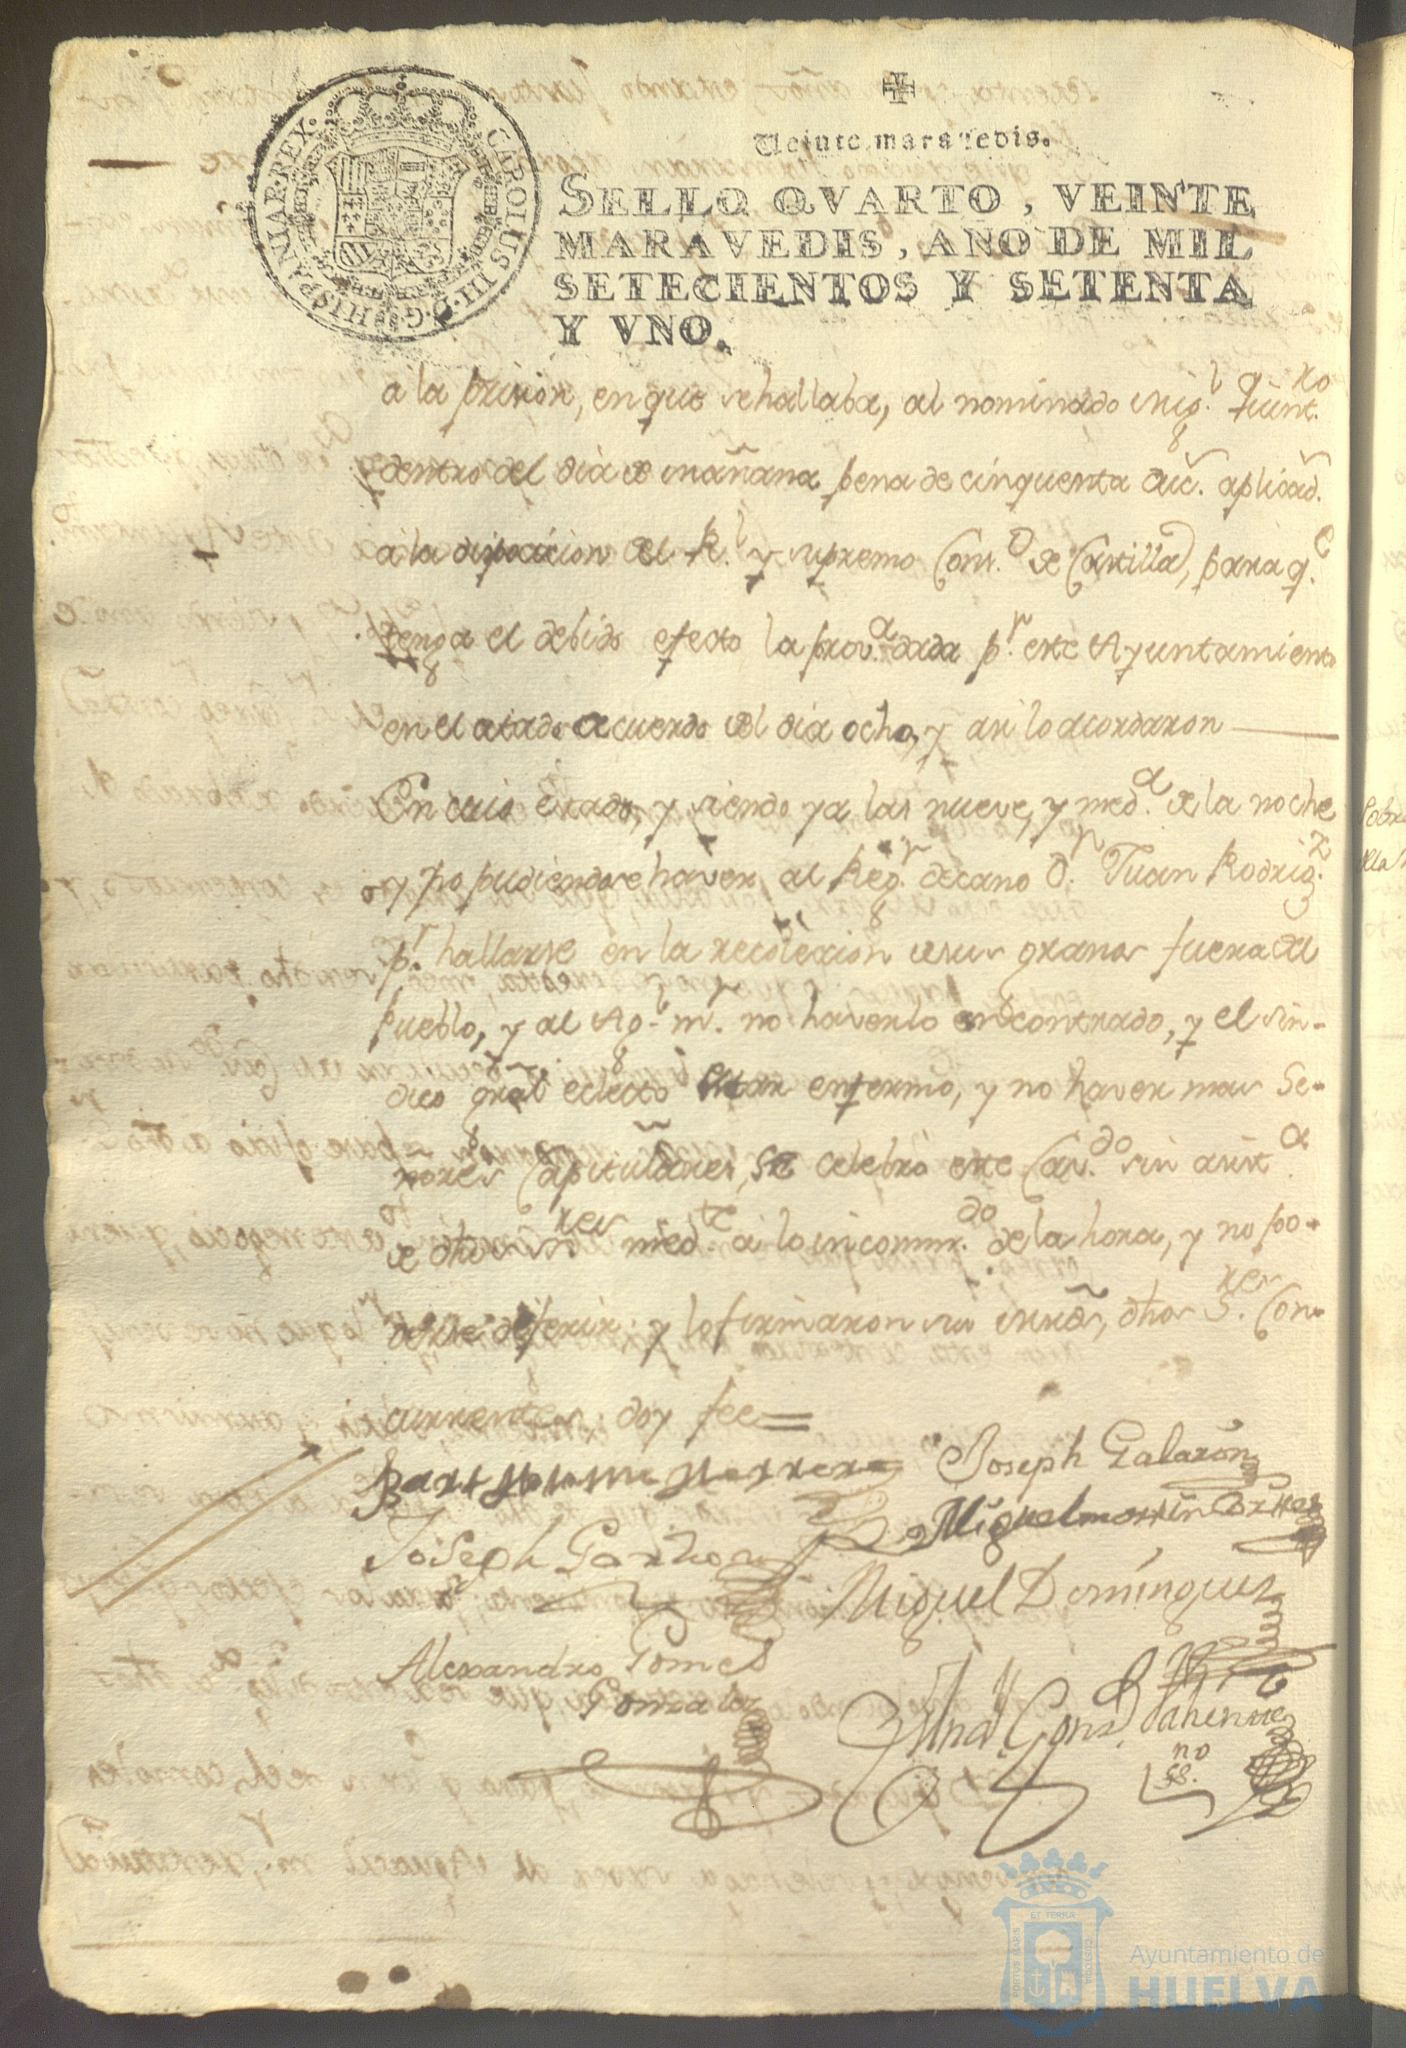 Veinte maravedis.
CAROLUS III D G HISPANIAR REX
SELLO QVARTO, VEINTE
MARAVEDIS, AÑO DE MIL
SETECIENTOS Y SETENTA
Y VNO.
a la prision, en que se hallaba, al nominado Mig.l
dentro del dia de mañana pena de cinquenta duc. aplicad.
a la disposicion del R.l y supremo Cons.o de Castilla, para q.e
tenga el debido efecto la prov.a dada p.r este Ayuntamiento
en el citado acuerdo del dia ocho, y asi lo acordaron
En cuio estado, y siendo ya las nueve, y med.a de la noche
y no pudiendose haver al Reg.r decano D.n Juan Rodrig.z
p.r hallarse en la recoleccion de sus granos fuera del
Pueblo, y al Ag.l m.r no haverlo encontrado, y el sin-
dico gral electo estar enfermo, y no haver mas Se-
nores Capitulares, se celebró este Cav.do sin asist.a
de dhos Sres med.te a lo incomm.do de la hora, y no po-
derse deferir; y lo firmaron sus mrds, dhos S.res Con-
currentes; doy fee=
Bartholome Herrera
Joseph Galazon
Miguel martin Cortes
Joseph Garzhon
Miguel Dominguez
Alexandro Gomes
Gonzalez
Gonz.
no
ss.
Ayuntamiento de
HUELVA
PORTUS MARIS
ET TERRÆ
CUSTODIA